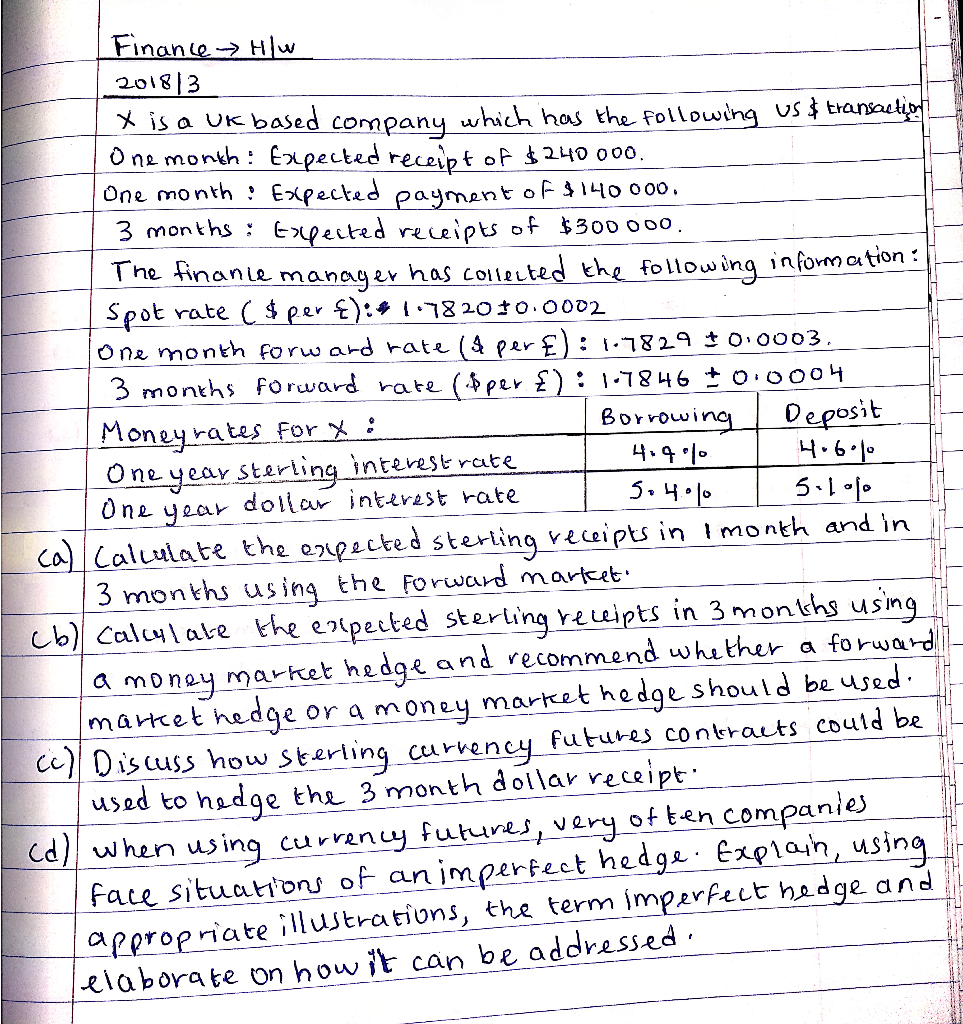 Finance → H/w
2018/3
X is a UK based company which has the following US $ transaction
One month : Expected receipt of $240 000.
One month : Expected payment of $140 000.
3 months : Expected receipts of $300 000.
The finance manager has collected the following information :
Spot rate ($ per £): 1.7820 ± 0.0002
One month forward rate ($ per £) : 1.7829 ± 0.0003.
3 months forward rate ($ per £) : 1.7846 ± 0.0004
Money rates for X : Borrowing Deposit
One year sterling interest rate 4.9% 4.6%
One year dollar interest rate 5.4% 5.1%
(a) Calculate the expected sterling receipts in 1 month and in
3 months using the forward market.
(b) Calculate the expected sterling receipts in 3 months using
a money market hedge and recommend whether a forward
market hedge or a money market hedge should be used.
(c) Discuss how sterling currency futures contracts could be
used to hedge the 3 month dollar receipt.
(d) when using currency futures, very often companies
face situations of an imperfect hedge. Explain, using
appropriate illustrations, the term imperfect hedge and
elaborate on how it can be addressed.